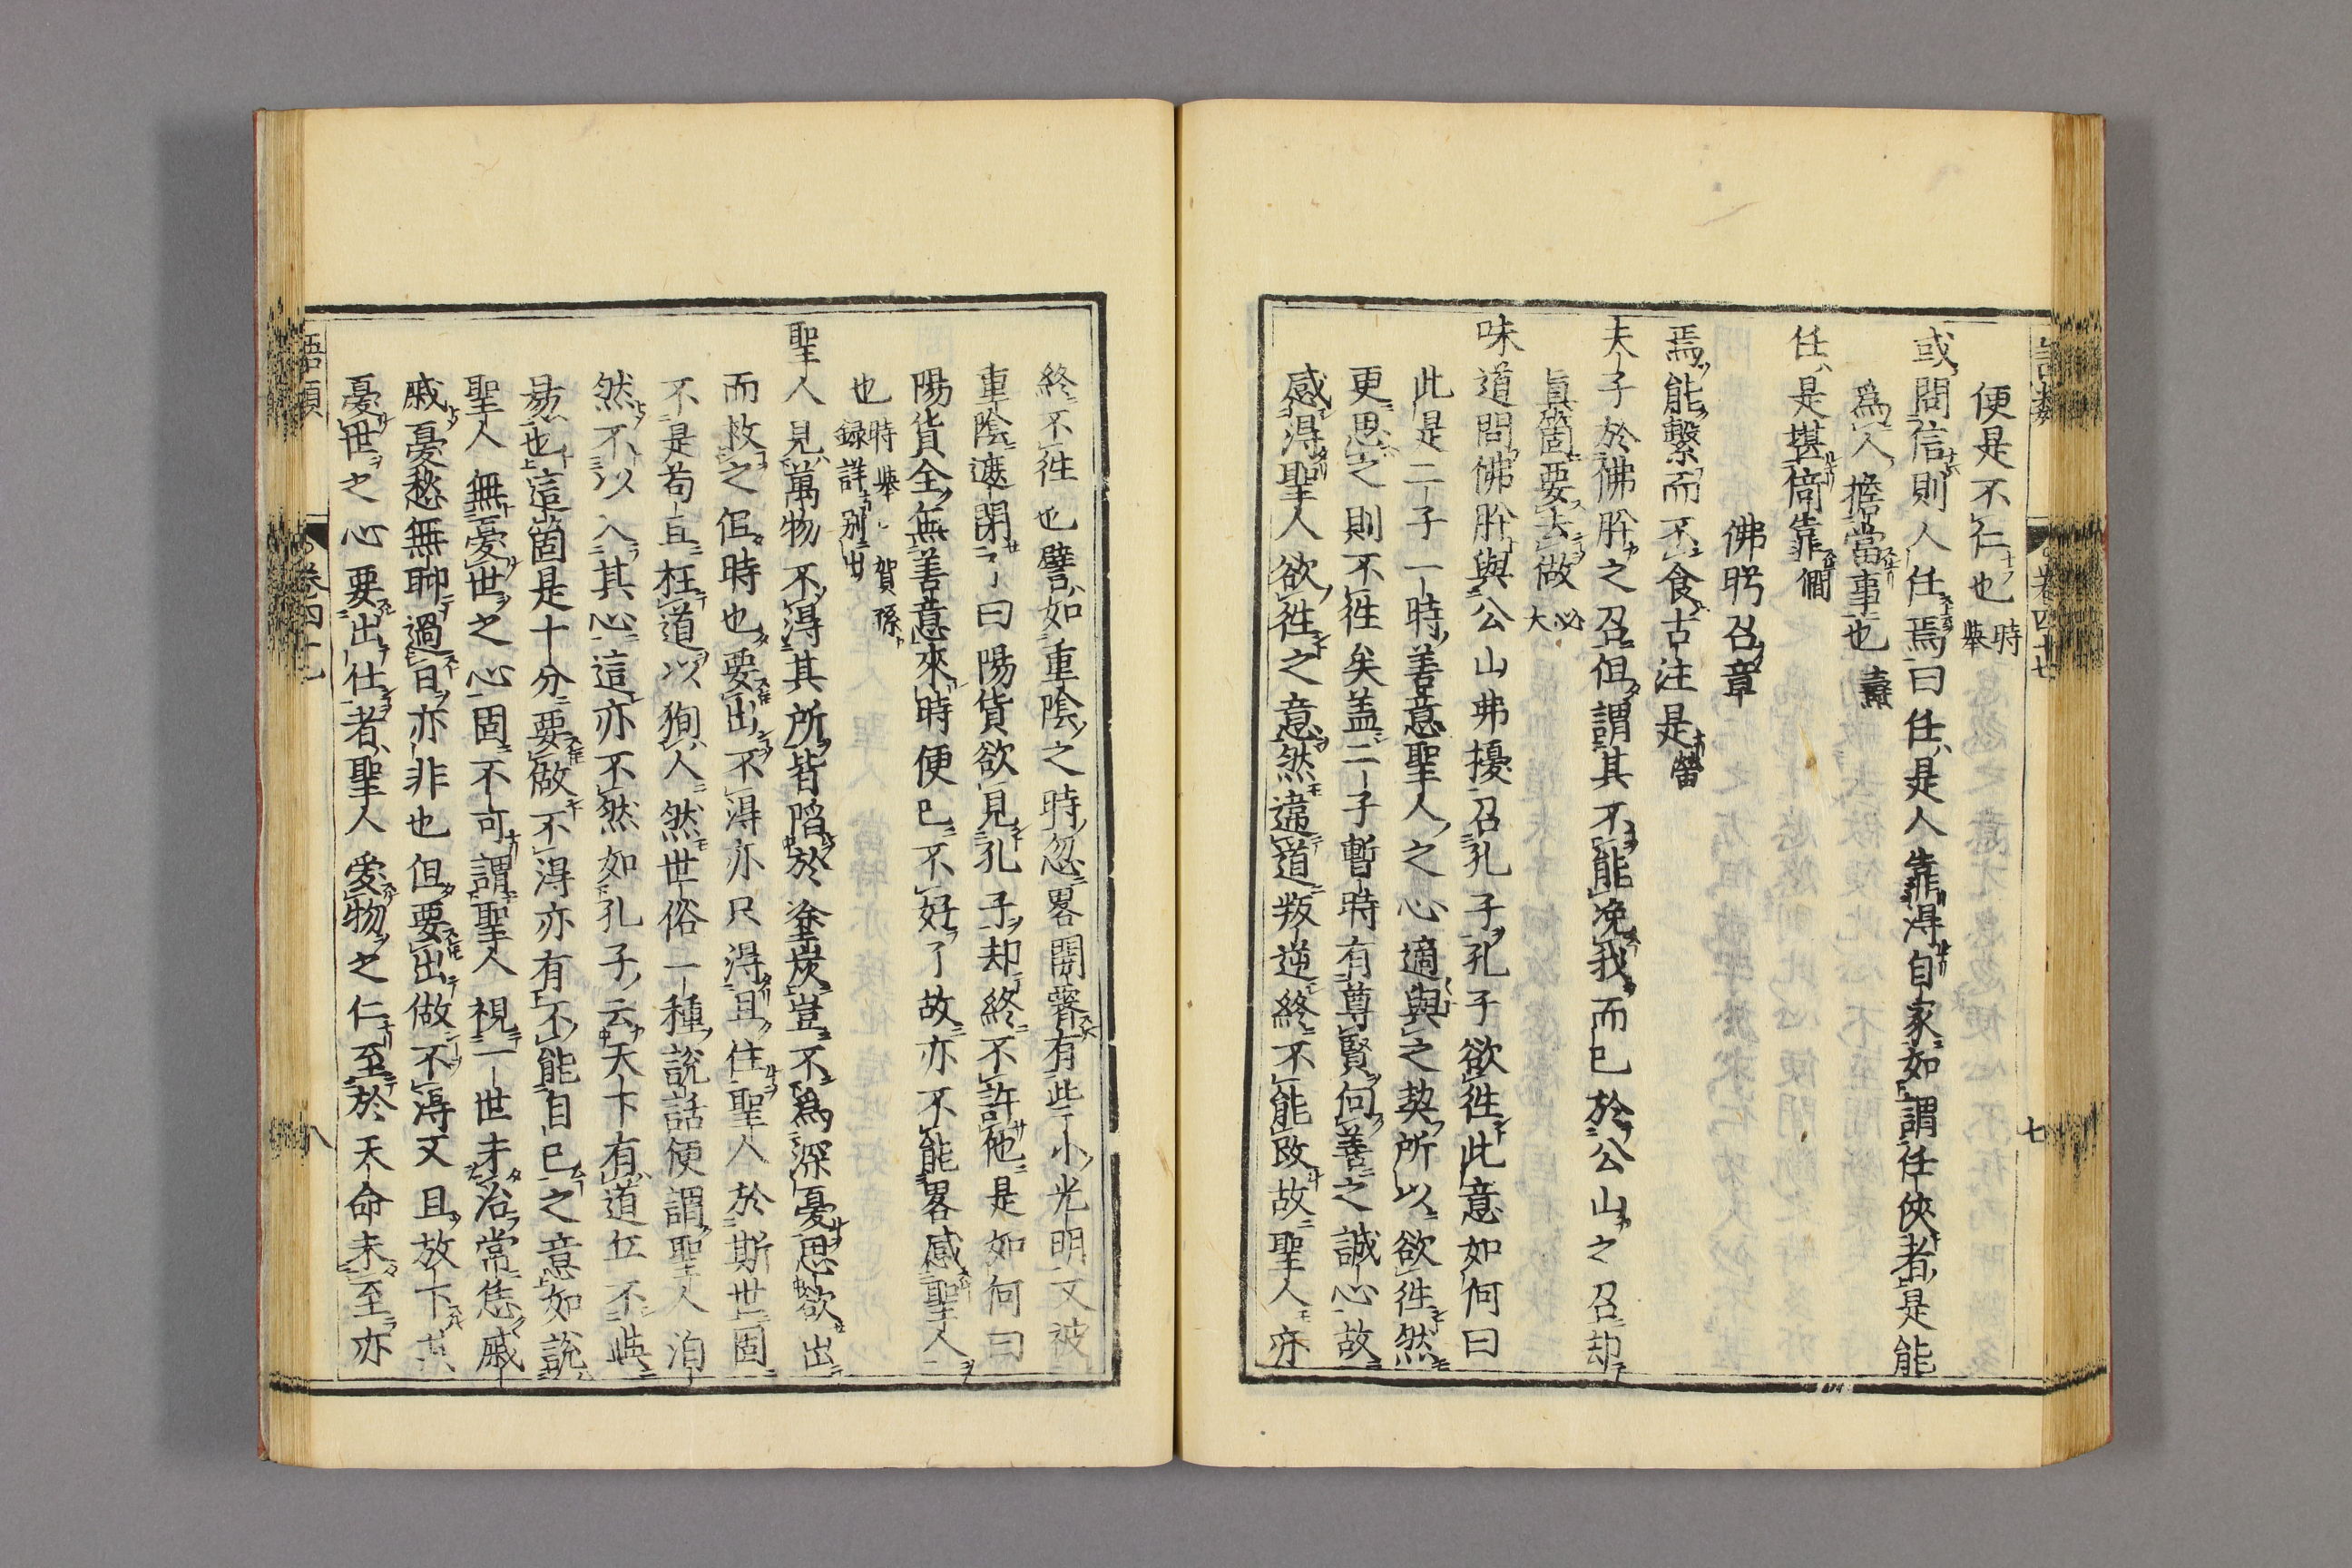 便是不仁也時擧
或問信則人任焉曰任是人靠得自家如謂任俠者是能
爲人擔當事也燾
任是堪倚靠僩
佛肸召章
焉能繫而不食古注是𥌓
夫子於佛肸之召但謂其不能浼我而已於公山之召却
眞箇要去做必大
味道問佛肸與公山弗擾召孔子孔子欲徃此意如何曰
此是二子一時善意聖人之心適與之契所以欲徃然
更思之則不徃矣盖二子暫時有尊賢向善之誠心故
感得聖人欲徃之意然違道叛逆終不能改故聖人亦
終不徃也譬如重陰之時忽畧開霽有些小光明又被
重陰遮閉了曰陽貨欲見孔子却終不許他是如何曰
陽貨全無善意來時便已不好了故亦不能畧感聖人
也時擧賀孫録詳別出
聖人見萬物不得其所皆陷於塗炭豈不爲深憂思欲出
而救之但時也要出不得亦只得且住聖人於斯世固
不是苟且枉道以狥人然世俗一種說話便謂聖人泊
然不以入其心這亦不然如孔子云天下有道丘不與
易也這箇是十分要做不得亦有不能自已之意如說
聖人無憂世之心固不可謂聖人視一世未治常恁戚
戚憂愁無聊過日亦非也但要出做不得又且放下其
憂世之心要出仕者聖人愛物之仁至於天命未至亦
語類
卷四十七
七
八